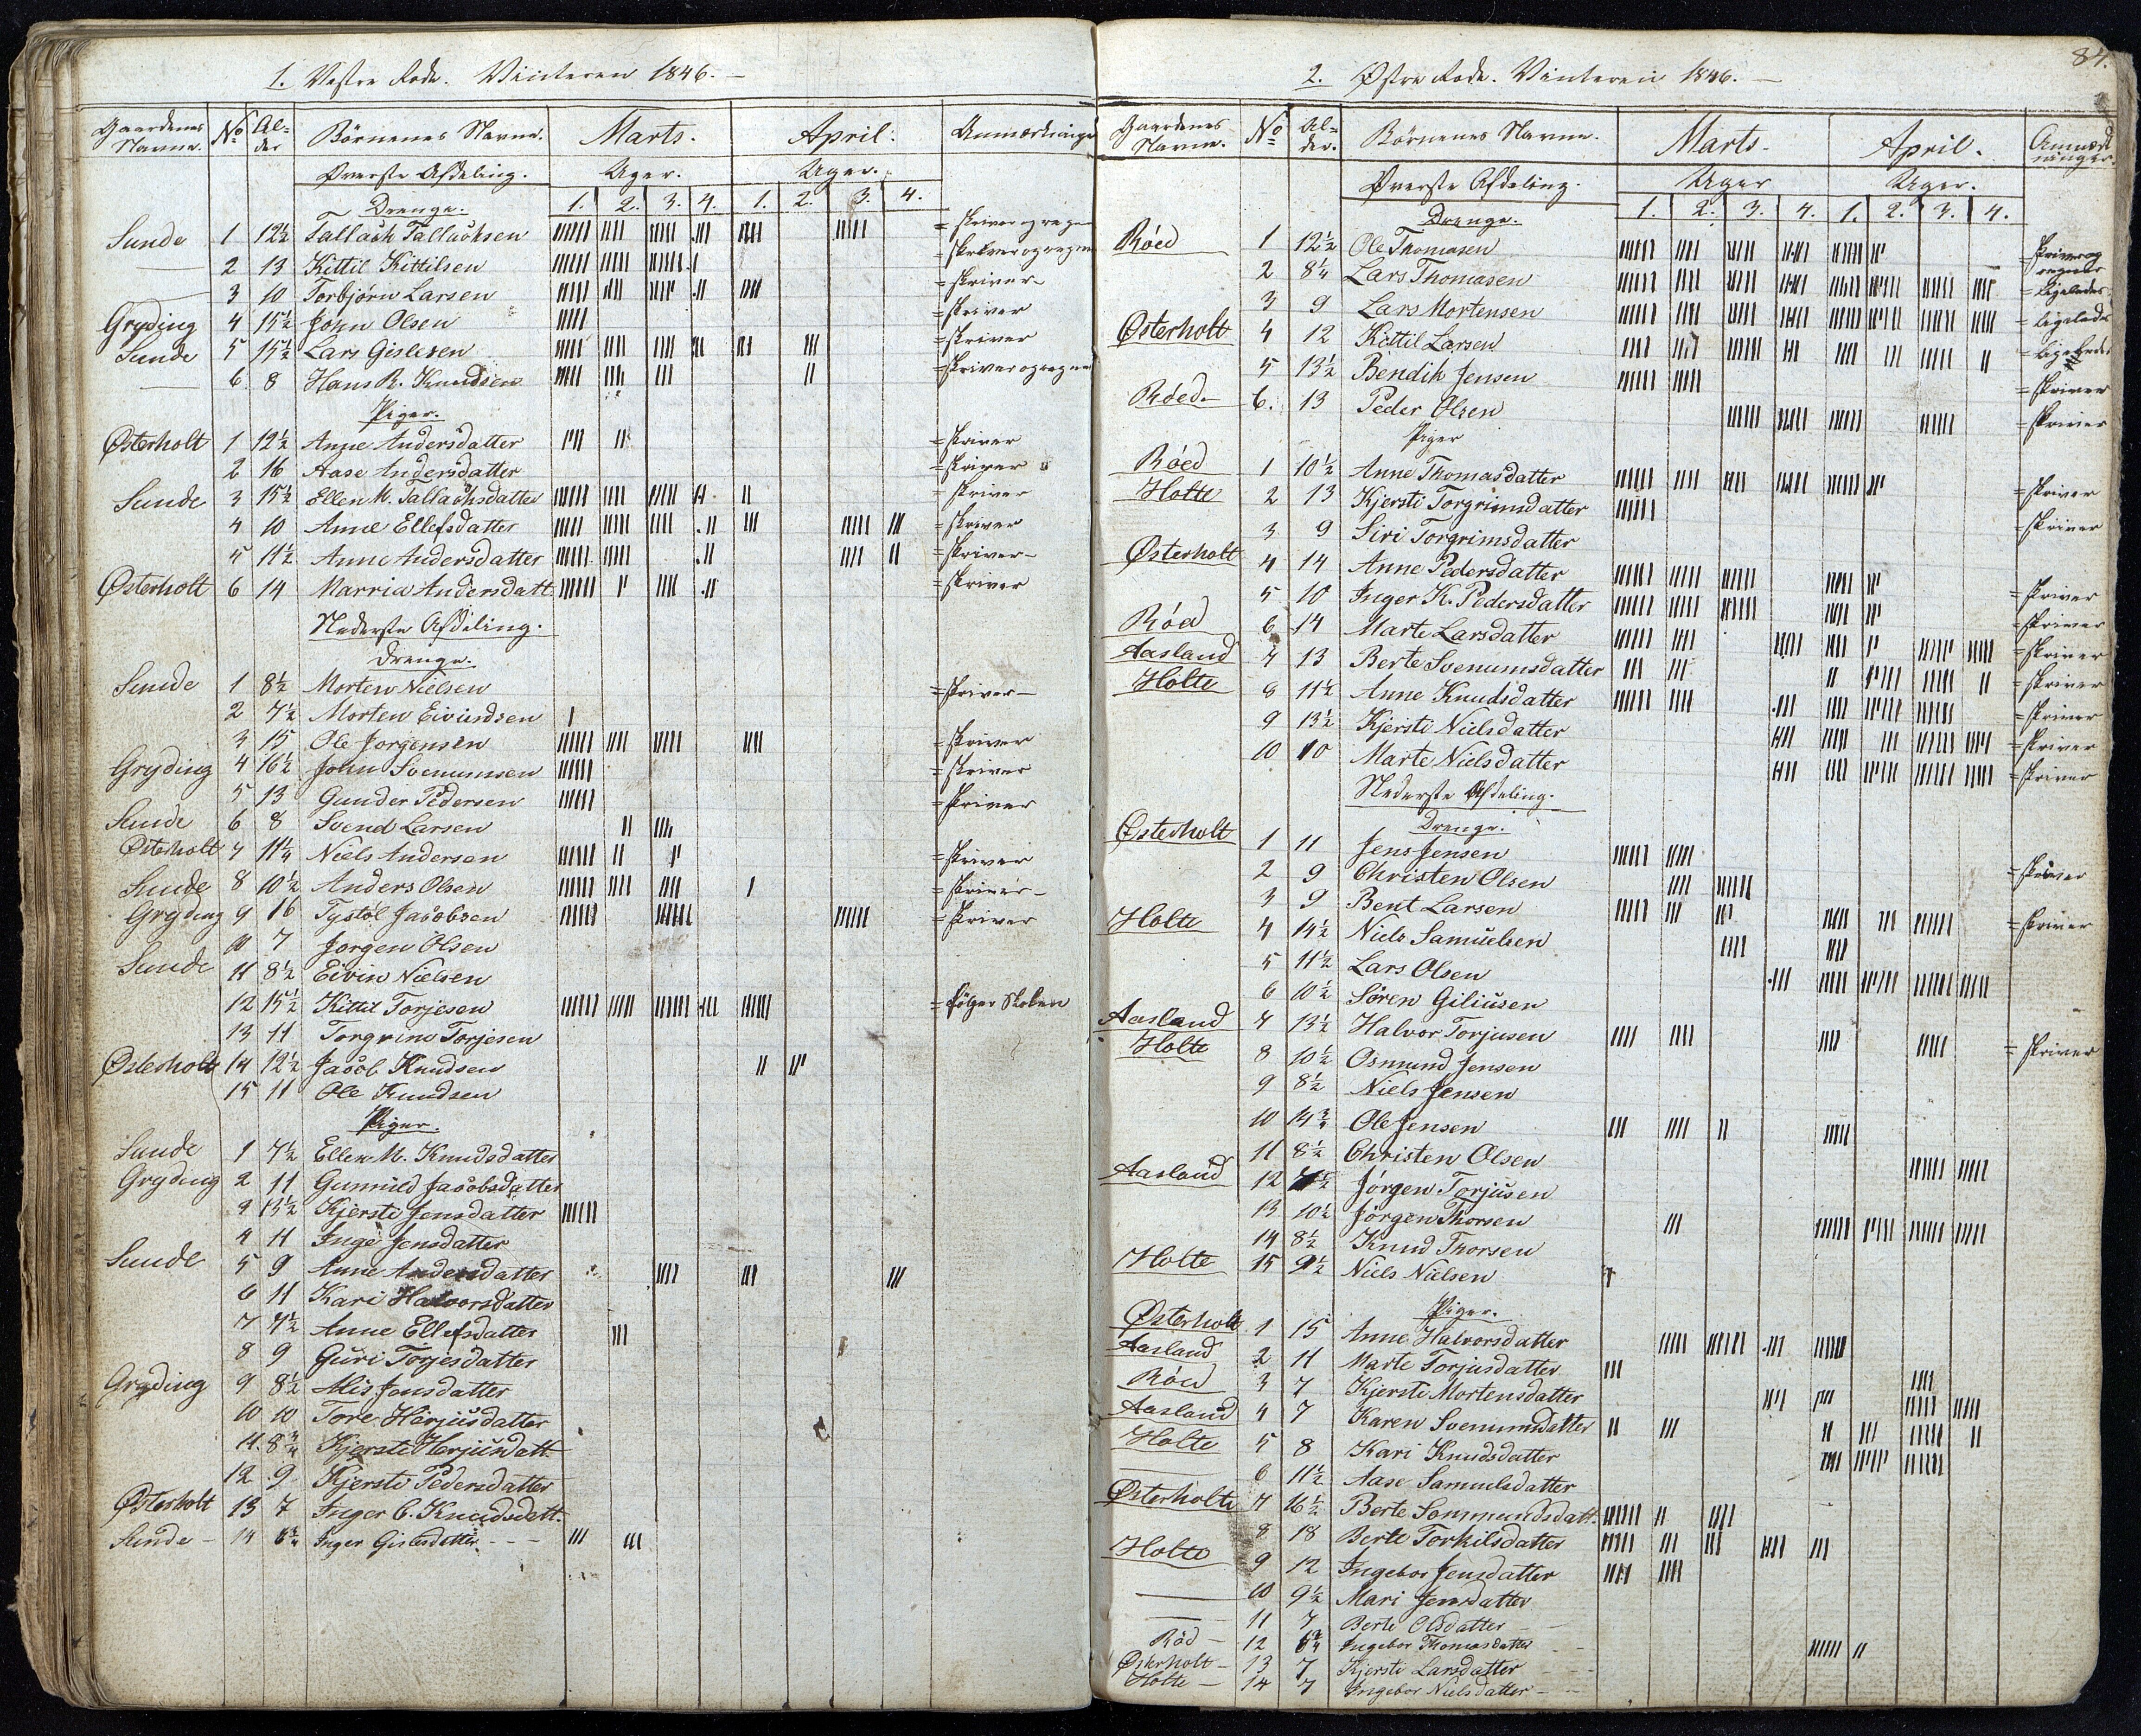 1. Vestre Rode. Vinteren 1846. —
Gaardenes Navne. No Al=der Børnenes Navne. Marts. April. Anmærkninger
Øverste Afdeling. Uger. Uger.
Drenge. 1. 2. 3. 4. 1. 2. 3. 4.
Sunde 1 12½ Tallack Tallacksen = skriver og regner
— 2 13 Kittil Kittilsen = skriver og regner
3 10 Torbjørn Larsen = skriver
Gryding 4 15½ John Olsen = skriver
Sunde 5 15½ Lars Gislesen = skriver
— 6 8 Hans R. Knudsen = skriver og regner
Piger.
Østerholt 1 12½ Anne Andersdatter = skriver
2 16 Aase Andersdatter = skriver
Sunde 3 15½ Ellen M. Tallacksdatter = skriver
4 10 Anne Ellefsdatter = skriver
5 11½ Anne Andersdatter = skriver
Østerholt 6 14 Marria Andersdatt = skriver
Nederste Afdeling.
Drenge.
Sunde 1 8½ Morten Nielsen = skriver
2 7½ Morten Eivindsen
3 15 Ole Jorgensen = skriver
Gryding 4 16½ John Svenumsen = skriver
5 13 Gunder Pedersen = skriver
Sunde 6 8 Svend Larsen
Østerholt 7 11¼ Niels Andersen = skriver
Sunde 8 10½ Anders Olsen = skriver
Gryding 9 16 Tystøl Jacobsen = skriver
10 7 Jørgen Olsen
Sunde 11 8½ Eivin Nielsen
12 15½ Kittil Torjesen = følger Skolen
13 11 Torgrim Torjesen
Østerholt 14 12½ Jacob Knudsen
15 11 Ole Knudsen
Piger.
Sunde 1 7½ Ellen M. Knudsdatter
Gryding 2 11 Gunnild Jacobsdatter
3 13½ Kjersti Jensdatter
4 11 Inge Jensdatter
Sunde 5 9 Anne Andersdatter
6 11 Kari Halvorsdatter
7 7½ Anne Ellefsdatter
8 9 Guri Torjesdatter
Gryding 9 8½ Alis Jensdatter
10 10 Tore Harjusdatter
11. 8¾ Kjersti Harjusdatt
12 9 Kjersti Pedersdatter
Østerholt 13 7 Inger C. Knudsdatt.
Sunde — 14 6¾ Inger Gislesdatter - - -
84.
2. Østre Rode. Vinteren 1846. —
Gaardenes Navne. No Al=der. Børnenes Navne. Marts. April. Anmærkninger.
Øverste Afdeling. Uger Uger.
Drenge. 1. 2. 3. 4. 1. 2. 3. 4.
Röed 1 12½ Ole Thomasen = skriver og regner
2 8¼ Lars Thomasen = ligeledes
3 9 Lars Mortensen = ligeledes
Østerholt 4 12 Kittil Larsen = ligeledes
5 13½ Bendik Jensen = skriver
Röed 6. 13 Peder Olsen = skriver
Piger
Röed 1 10½ Anne Thomasdatter = skriver
Holte 2 13 Kjersti Torgrimsdatter = skriver
3 9 Siri Torgrimsdatter
Østerholt 4 14 Anne Pedersdatter = skriver
5 10 Inger K. Pedersdatter = skriver
Röed 6 14 Marte Larsdatter = skriver
Aasland 7 13 Berte Svenumsdatter = skriver
Holte 8 11½ Anne Knudsdatter = skriver
9 13½ Kjersti Nielsdatter = skriver
10 10 Marte Nielsdatter = skriver
Nederste Afdeling.
Drenge.
Østerholt 1 11 Jens Jensen
2 9 Christen Olsen = skriver
3 9 Bent Larsen
Holte 4 14½ Niels Samuelsen = skriver
5 11½ Lars Olsen
6 10½ Søren Giliusen
Aasland 7 13½ Halvor Torjusen
Holte 8 10½ Osmund Jensen = skriver
9 8½ Niels Jensen
10 14¾ Ole Jensen
11 8½ Christen Olsen
Aasland 12 Jörgen Torjusen
13 10½ Jörgen Thorsen
14 8½ Knud Thorsen
Holte 15 9½ Niels Nielsen
Piger.
Østerholt 1 15 Anne Halvorsdatter
Aasland 2 11 Marte Torjusdatter
Röed 3 7 Kjersti Mortensdatter
Aasland 4 7 Karen Svenumsdatter
Holte 5 8 Kari Knudsdatter
— 6 11½ Aase Samuelsdatter
Østerholte 7 16½ Berte Sommundsdatt.
8 18 Berte Torkilsdatter
Holte 9 12 Ingebor Jensdatter
— 10 9½ Mari Jensdatter
— 11 7 Berte Olsdatter —
Röd — 12 6¾ Ingebor Thomasdatter - -
Østerholt — 13 7 Kjersti Larsdatter - -
Holte — 14 7 Ingebor Nielsdatter - -